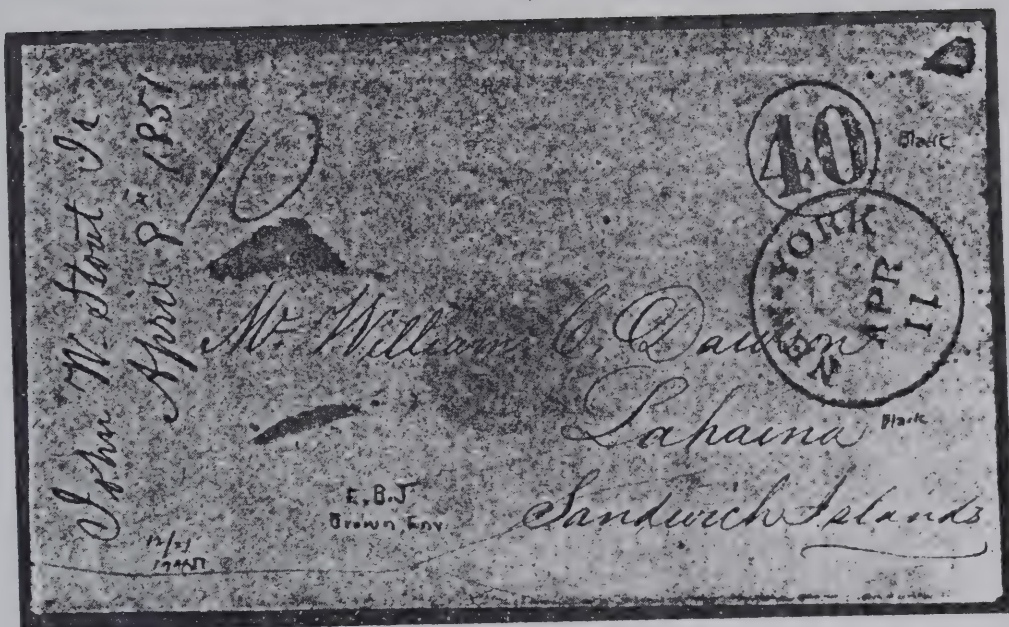 John W. Stout Jr
April 9th 1851
10
40
Black
NEW-YORK
APR
11
Mr. William C. Dawson
Lahaina
Black
Sandwich Islands
E.B.J
Brown Env.